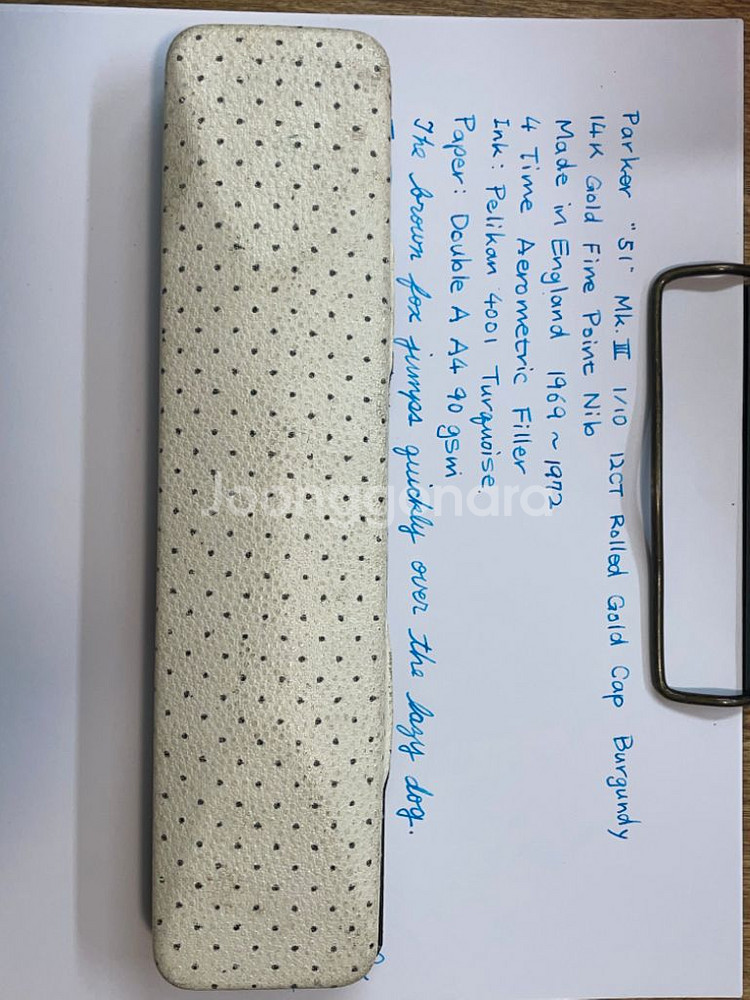 Parker "51" Mk.III 1/10 12CT Rolled Gold Cap Burgundy
14K Gold Fine Point Nib
Made in England 1969 ~ 1972
4 Time Aerometric Filler
Ink: Pelikan 4001 Turquoise.
Paper: Double A A4 90 gsm
The brown fox jumps quickly over the lazy dog.
Joonggonara